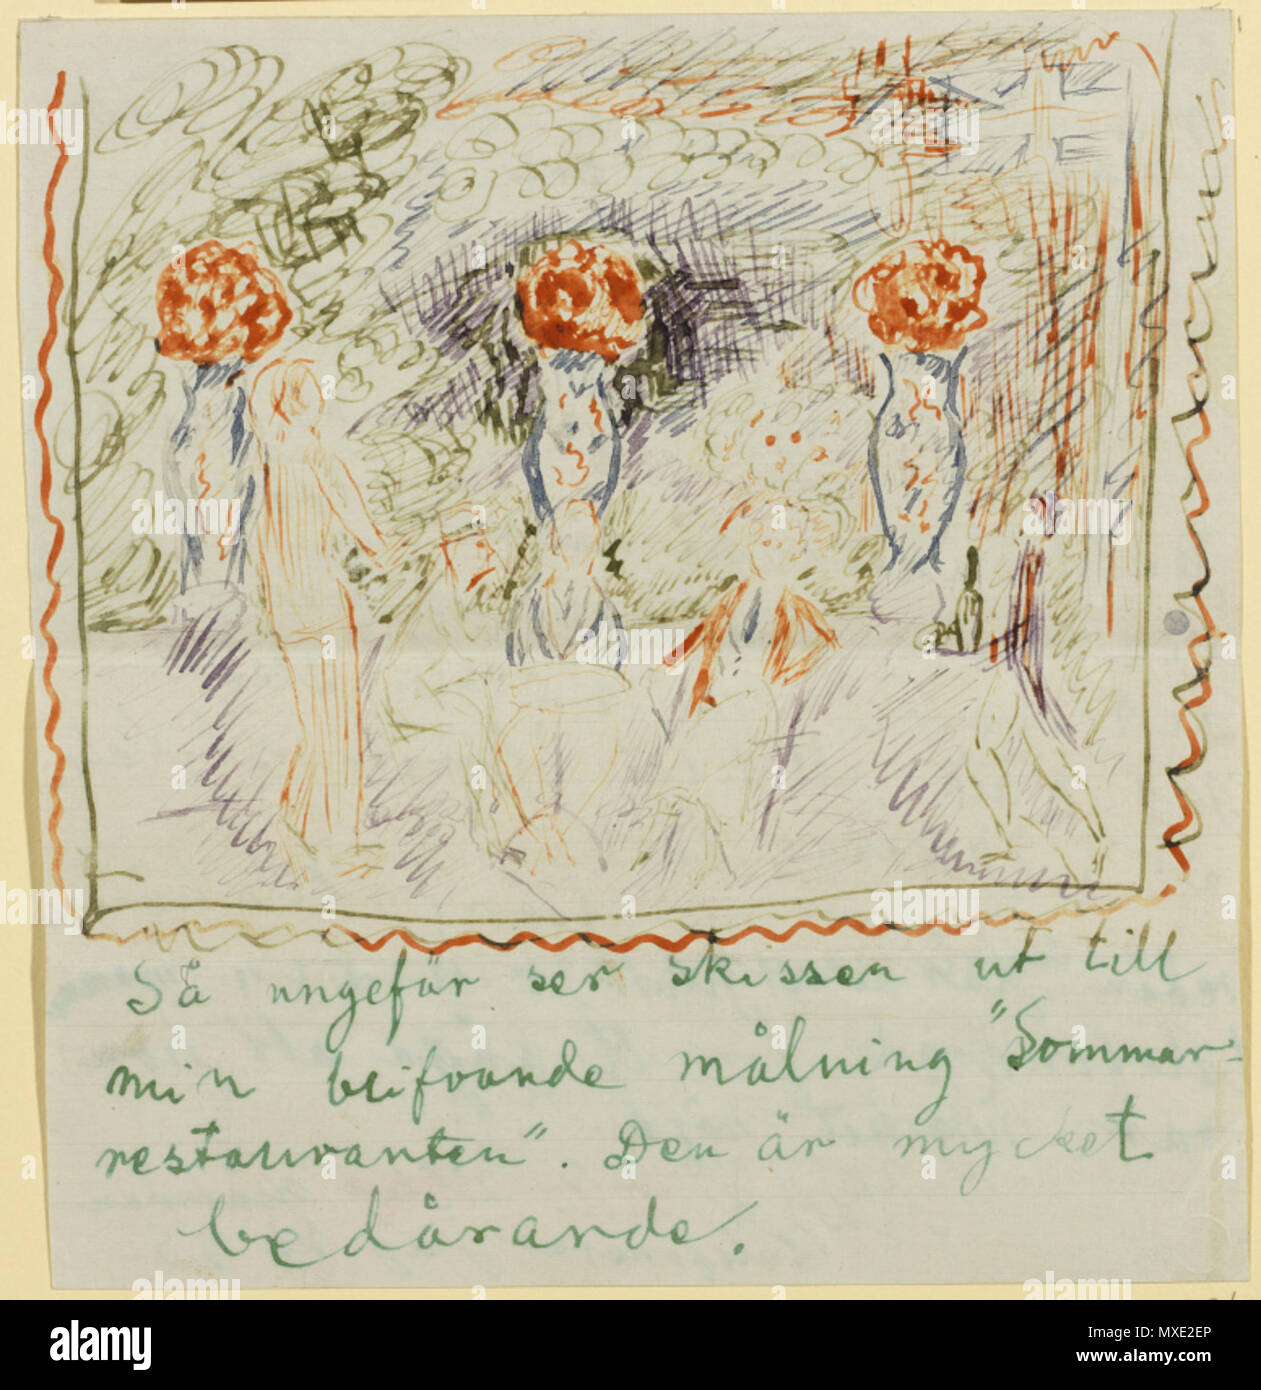 Så ungefär ser skissen ut till
min blifvande målning "Sommar-
restauranten". Den är mycket
bedårande.
alamy
Image ID: MXE2EP
www.alamy.com